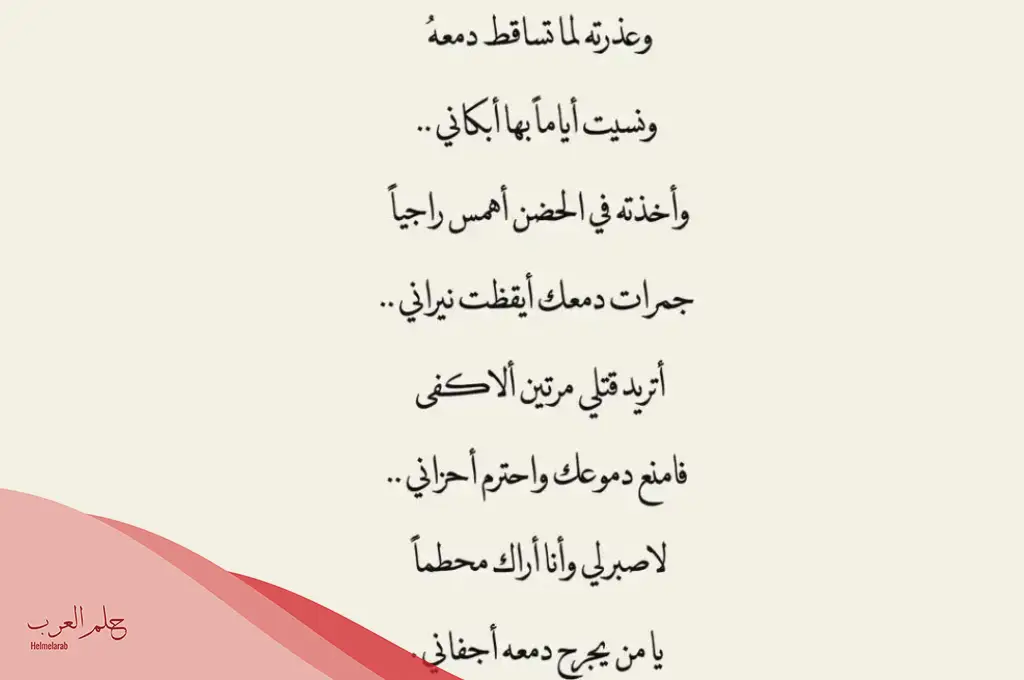 وعذرته لما تساقط دمعهُ
ونسيت أياماً بها أبكاني ..
وأخذته في الحضن أهمس راجياً
جمرات دمعك أيقظت نيراني ..
أتريد قتلي مرتين ألا كفى
فامنع دموعك واحترم أحزاني ..
لا صبر لي وأنا أراك محطماً
يا من يجرح دمعه أجفاني .
حلم العرب
Helmelarab